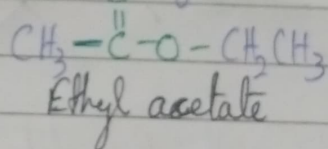 CH₃-C-O-CH₂CH₃
Ethyl acetate